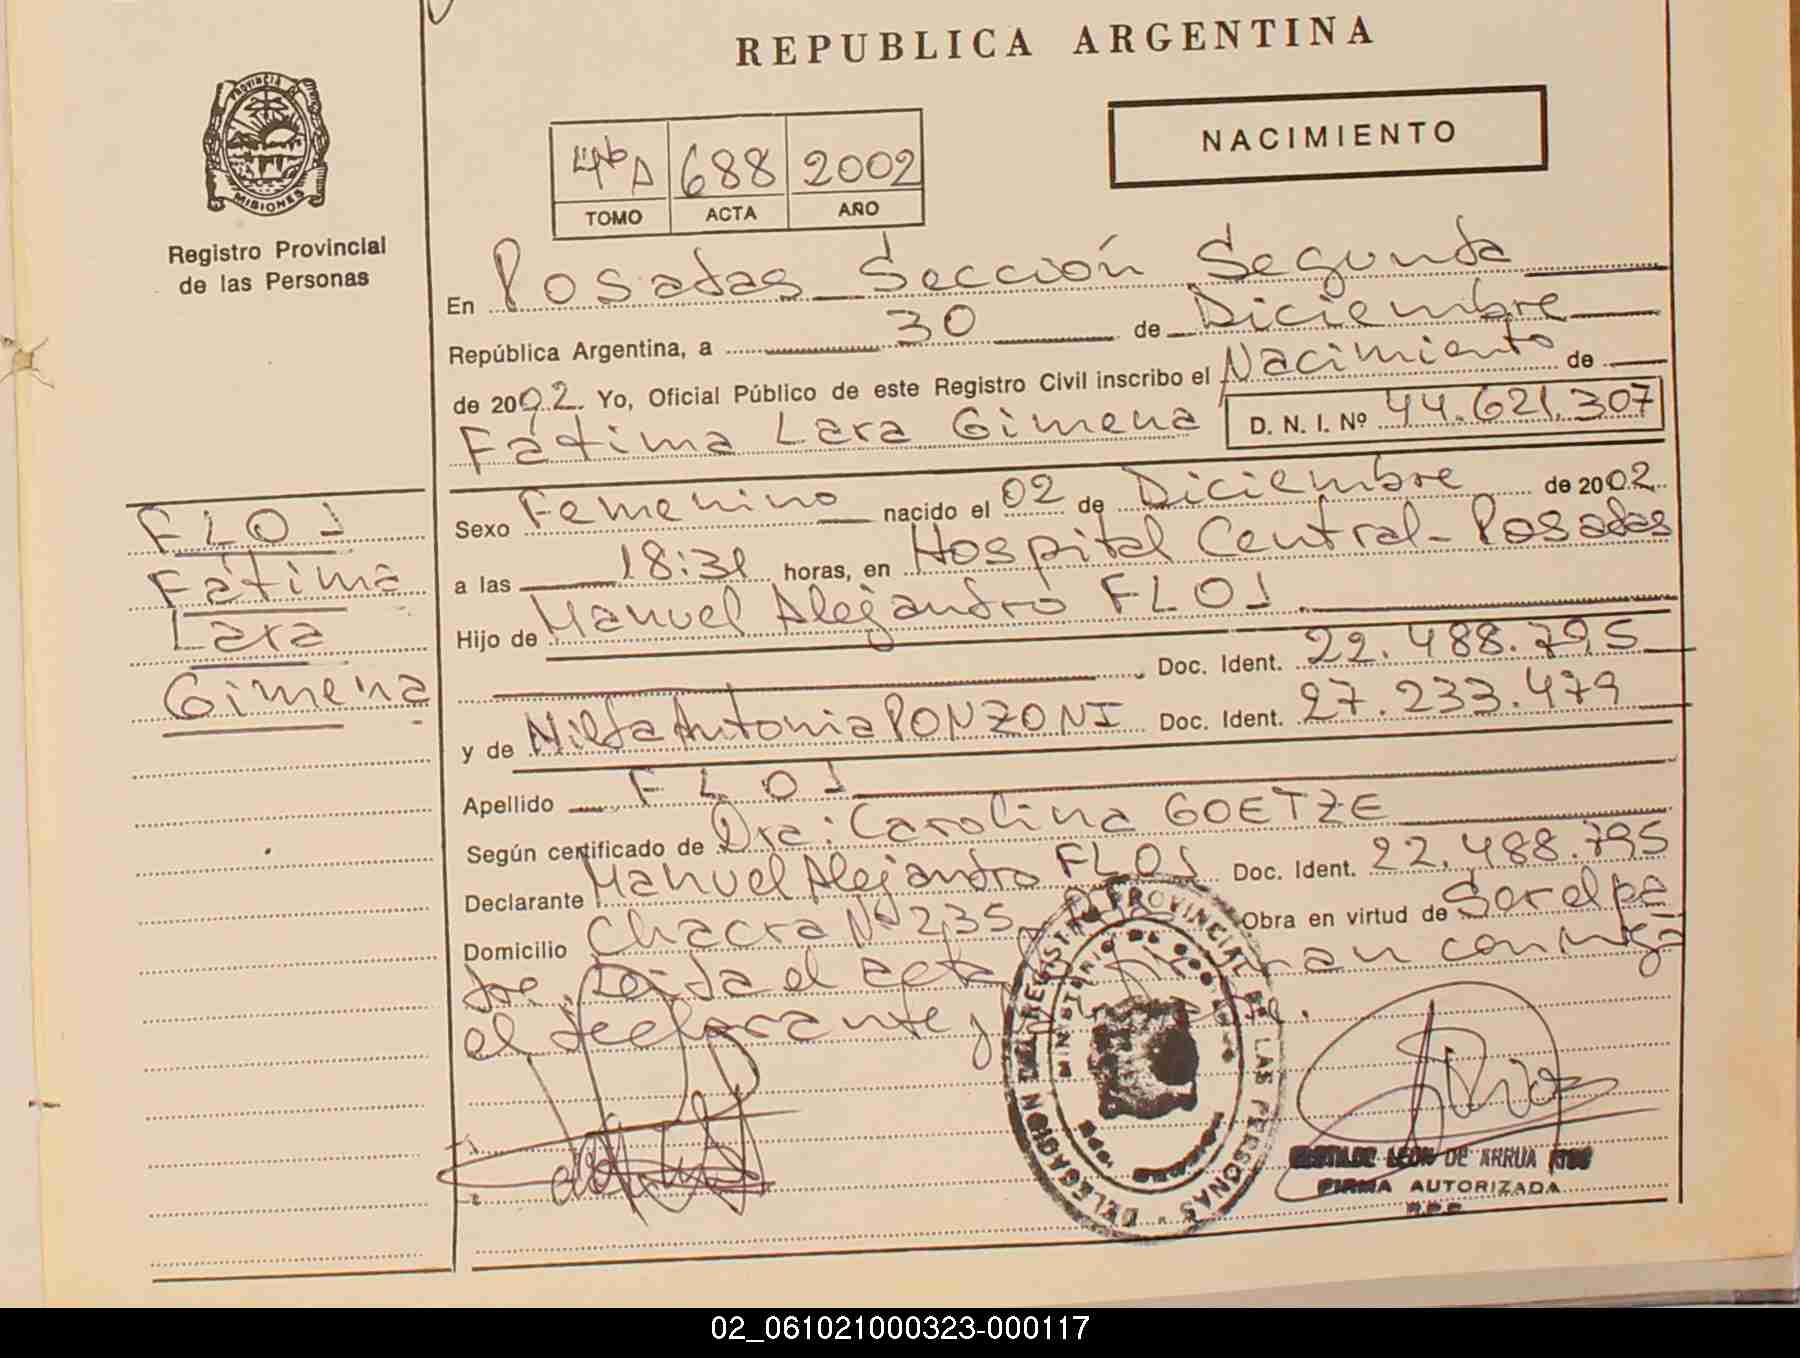 REPUBLICA ARGENTINA
PROVINCIA DE
MISIONES
Registro Provincial
de las Personas
NACIMIENTO
4to A 688 2002
TOMO ACTA AÑO
En Posadas Sección Segunda
República Argentina, a 30 de Diciembre
de 2002 Yo, Oficial Público de este Registro Civil inscribo el Nacimiento de
Fátima Lara Gimena D. N. I. Nº 44.621.307
FLOS
Fátima
Lara
Gimena
Sexo Femenino nacido el 02 de Diciembre de 2002
a las 18:31 horas, en Hospital Central-Posadas
Hijo de Manuel Alejandro FLOS
Doc. Ident. 22.488.795
y de Nilda Antonia PONZONI Doc. Ident. 27.233.479
Apellido FLOS
Según certificado de Dra: Carolina GOETZE
Declarante Manuel Alejandro FLOS Doc. Ident. 22.488.795
Domicilio Chacra Nº 235 Obra en virtud de Ser el pa
dre. Leída el acta firman conmigo
el declarante
DELEGACION DEL REGISTRO PROVINCIAL DE LAS PERSONAS
MINISTERIO DE GOBIERNO
LEON DE ARRUA
FIRMA AUTORIZADA
R.P.P.
02_061021000323-000117